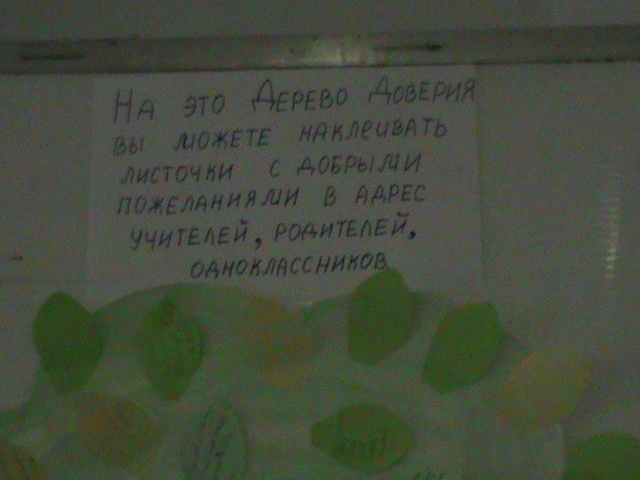 НА ЭТО ДЕРЕВО ДОВЕРИЯ
ВЫ МОЖЕТЕ НАКЛЕИВАТЬ
ЛИСТОЧКИ С ДОБРЫМИ
ПОЖЕЛАНИЯМИ В АДРЕС
УЧИТЕЛЕЙ, РОДИТЕЛЕЙ,
ОДНОКЛАССНИКОВ.